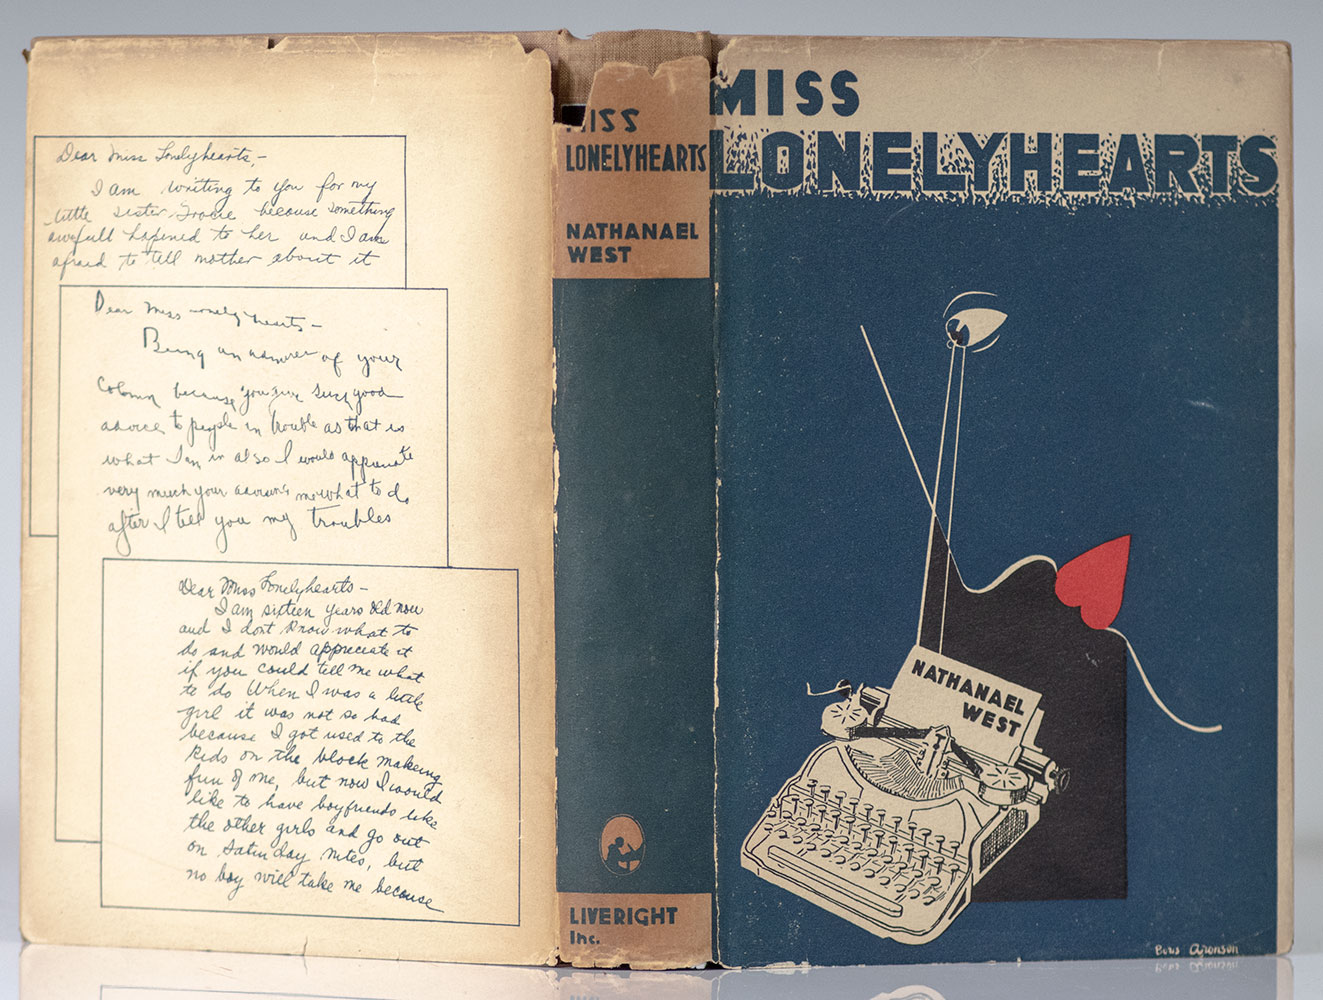 Dear Miss Lonelyhearts,-
I am writing to you for my
little sister Gracie because something
awfull hapened to her and I am
afraid to tell mother about it
Dear Miss Lonelyhearts-
Being an admirer of your
column because you give such good
advice to people in trouble as that is
what I am in also I would appreciate
very much your advising me what to do
after I tell you my troubles
Dear Miss Lonelyhearts-
I am sixteen years old now
and I dont know what to
do and would appreciate it
if you could tell me what
to do When I was a little
girl it was not so bad
because I got used to the
kids on the block makeing
fun of me, but now I would
like to have boyfriends like
the other girls and go out
on Saturday nites, but
no boy will take me because
MISS
LONELYHEARTS
NATHANAEL
WEST
LIVERIGHT
Inc.
MISS
LONELYHEARTS
NATHANAEL
WEST
Boris Aronson